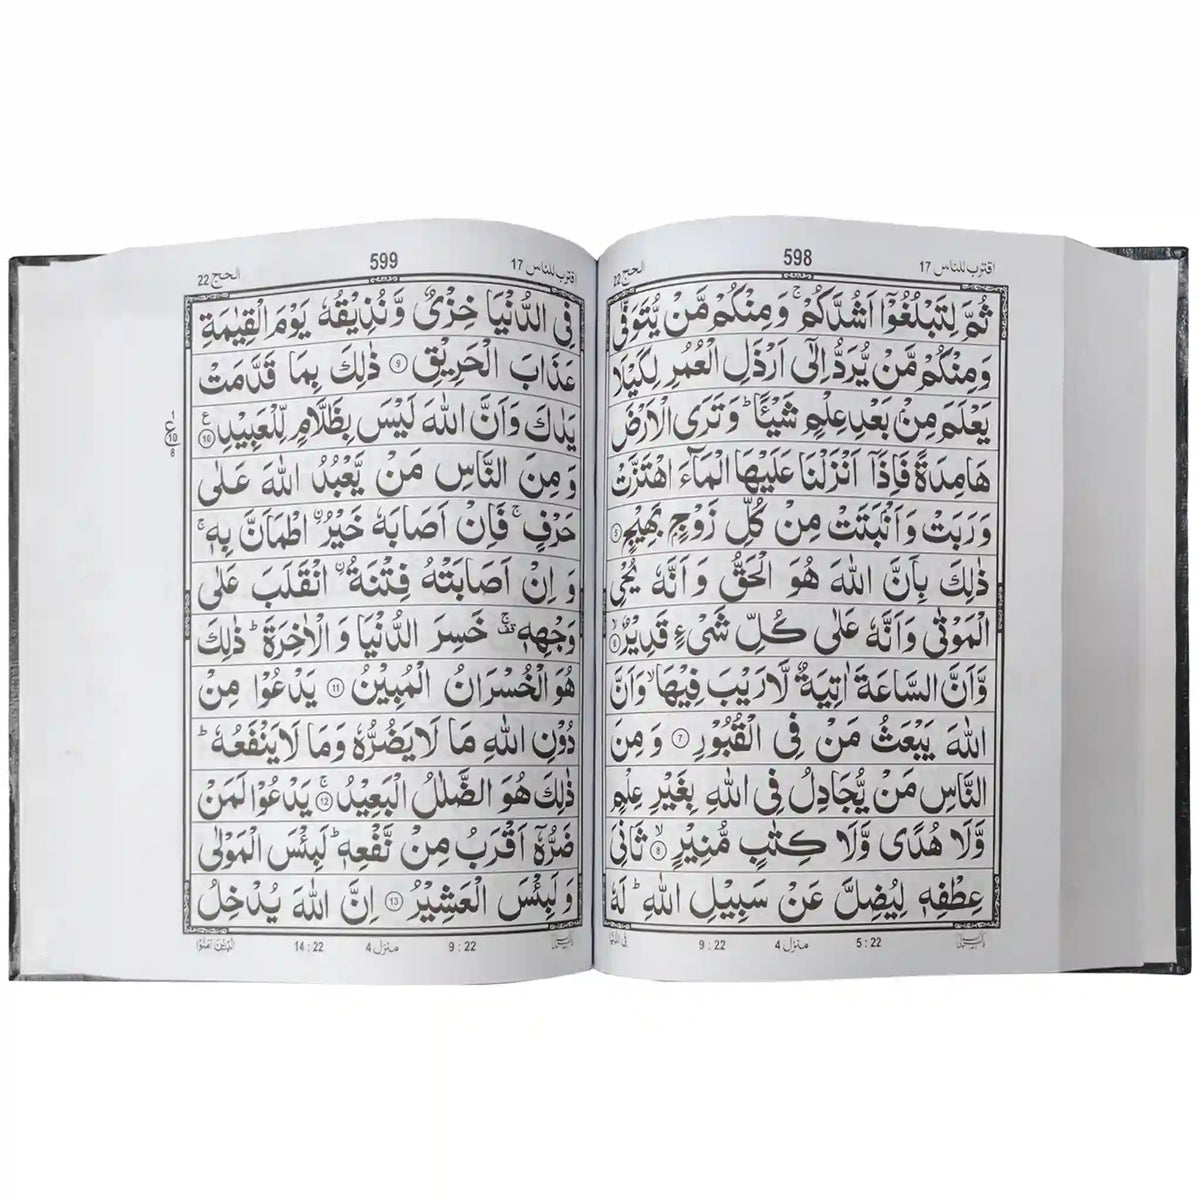 598
اقترب للناس 17
الحج 22
ثُمَّ لِتَبْلُغُوْٓا اَشُدَّكُمْ ۚ وَمِنْكُمْ مَّنْ يُّتَوَفّٰى
وَمِنْكُمْ مَّنْ يُّرَدُّ اِلٰٓى اَرْذَلِ الْعُمُرِ لِكَيْلَا
يَعْلَمَ مِنْۢ بَعْدِ عِلْمٍ شَيْـًٔا ؕ وَتَرَى الْاَرْضَ
هَامِدَةً فَاِذَآ اَنْزَلْنَا عَلَيْهَا الْمَآءَ اهْتَزَّتْ
وَرَبَتْ وَاَنْۢبَتَتْ مِنْ كُلِّ زَوْجٍۭ بَهِيْجٍ 5
ذٰلِكَ بِاَنَّ اللّٰهَ هُوَ الْحَقُّ وَاَنَّهٗ يُحْىِ
الْمَوْتٰى وَاَنَّهٗ عَلٰى كُلِّ شَىْءٍ قَدِيْرٌ ۙ 6
وَّاَنَّ السَّاعَةَ اٰتِيَةٌ لَّا رَيْبَ فِيْهَا ۙ وَاَنَّ
اللّٰهَ يَبْعَثُ مَنْ فِى الْقُبُوْرِ 7 وَمِنَ
النَّاسِ مَنْ يُّجَادِلُ فِى اللّٰهِ بِغَيْرِ عِلْمٍ
وَّلَا هُدًى وَّلَا كِتٰبٍ مُّنِيْرٍ ۙ 8 ثَانِىَ
عِطْفِهٖ لِيُضِلَّ عَنْ سَبِيْلِ اللّٰهِ ؕ لَهٗ
5 : 22
منزل 4
9 : 22
599
اقترب للناس 17
الحج 22
فِى الدُّنْيَا خِزْىٌ وَّنُذِيْقُهٗ يَوْمَ الْقِيٰمَةِ
عَذَابَ الْحَرِيْقِ 9 ذٰلِكَ بِمَا قَدَّمَتْ
يَدٰكَ وَاَنَّ اللّٰهَ لَيْسَ بِظَلَّامٍ لِّلْعَبِيْدِ 10 ع
1
ع 10
8
وَمِنَ النَّاسِ مَنْ يَّعْبُدُ اللّٰهَ عَلٰى
حَرْفٍ ۚ فَاِنْ اَصَابَهٗ خَيْرُ ۨ اطْمَاَنَّ بِهٖ ۚ
وَاِنْ اَصَابَتْهُ فِتْنَةُ ۨ انْقَلَبَ عَلٰى
وَجْهِهٖ ۚ قف خَسِرَ الدُّنْيَا وَالْاٰخِرَةَ ؕ ذٰلِكَ
هُوَ الْخُسْرَانُ الْمُبِيْنُ 11 يَدْعُوْا مِنْ
دُوْنِ اللّٰهِ مَا لَا يَضُرُّهٗ وَمَا لَا يَنْفَعُهٗ ؕ
ذٰلِكَ هُوَ الضَّلٰلُ الْبَعِيْدُ ۚ 12 يَدْعُوْا لَمَنْ
ضَرُّهٗٓ اَقْرَبُ مِنْ نَّفْعِهٖ ؕ لَبِئْسَ الْمَوْلٰى
وَلَبِئْسَ الْعَشِيْرُ 13 اِنَّ اللّٰهَ يُدْخِلُ
9 : 22
منزل 4
14 : 22